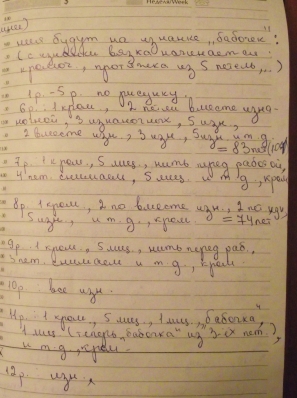 ния будут на изнанке „бабочек":
(с изнанки вязка начинается
кромоч, протяжка из 5 петель,..)
1р.-5р. по рисунку.
6р.: 1 кром., 2 петли вместе изна-
ночной, 3 изнаночных, 5 изн.,
2 вместе изн., 3 изн., 5 изн и т.д.
= 83 пет
7р. 1 кром., 5 лиц., нить перед работой,
4 пет. снимаем, 5 лиц. и т.д., кром
8р. 1 кром., 2 по вместе изн., 2 по
5 изн., и т.д., кром. = 74 пет
9р. 1 кром., 5 лиц., нить перед раб.,
3 пет. снимаем и т.д., кром.
10р. все изн.
11р.: 1 кром., 5 лиц., 1 лиц., „бабочка",
1 лиц. (теперь „бабочка" из 3-ех пет.),
и т.д., кром.
12р. изн.